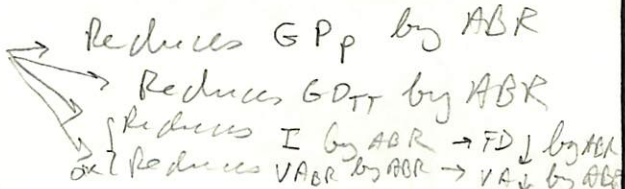 → Reduces GPp by ABR
→ Reduces GDTT by ABR
{ Reduces I by ABR → FD ↓ by ABR
or { Reduces VABR by ABR → VA ↓ by ABR